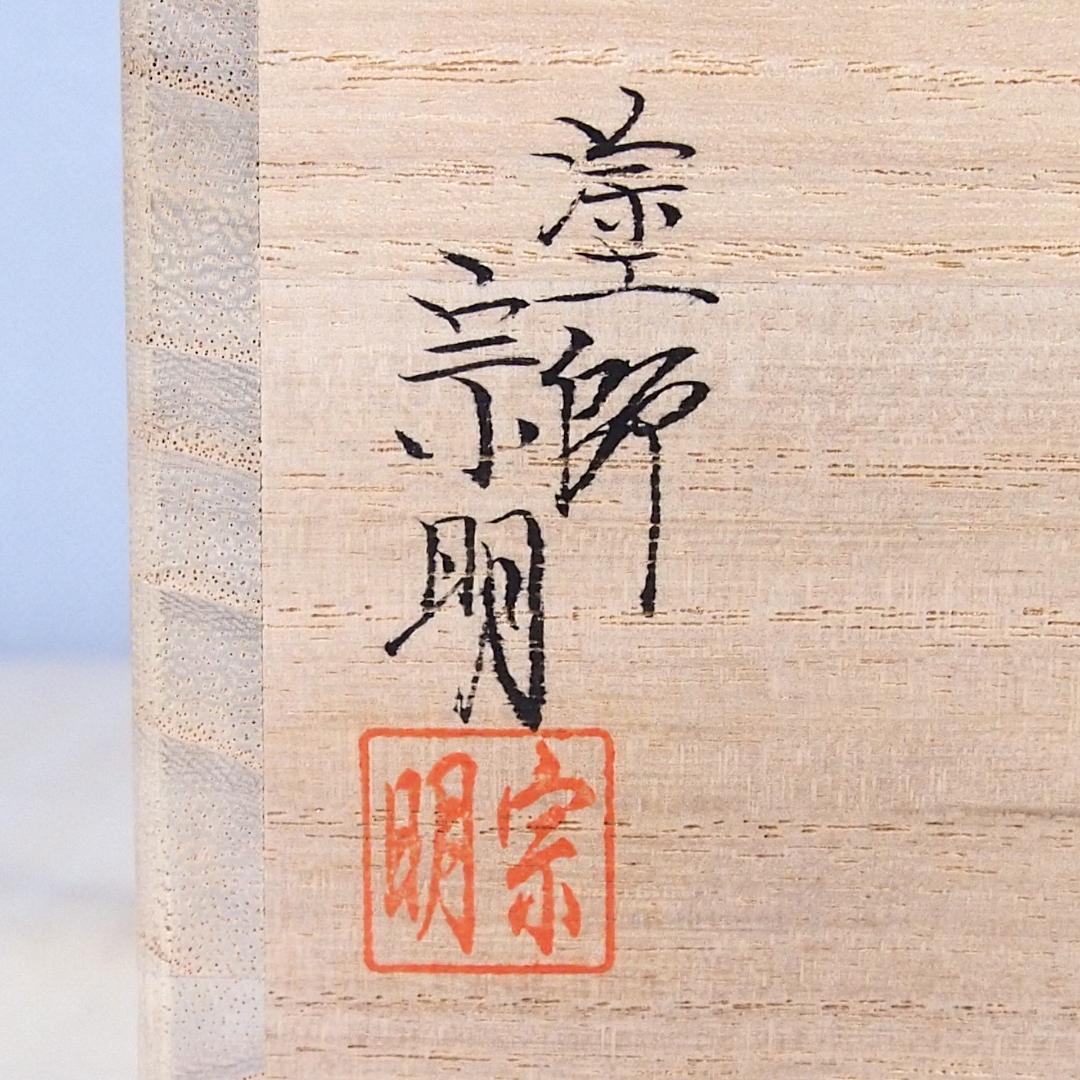 塗師
宗明
宗明